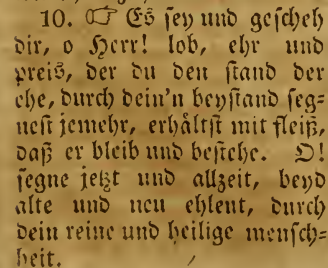 10. ☞ Es sey und gescheh
dir, o Herr! lob, ehr und
preis, der du den stand der
ehe, durch dein'n beystand seg=
nest jemehr, erhåltst mit fleiß,
daß er bleib und bestehe. O!
segne jetzt und allzeit, beyd
alte und neu ehleut, durch
dein reine und heilige mensch=
heit.